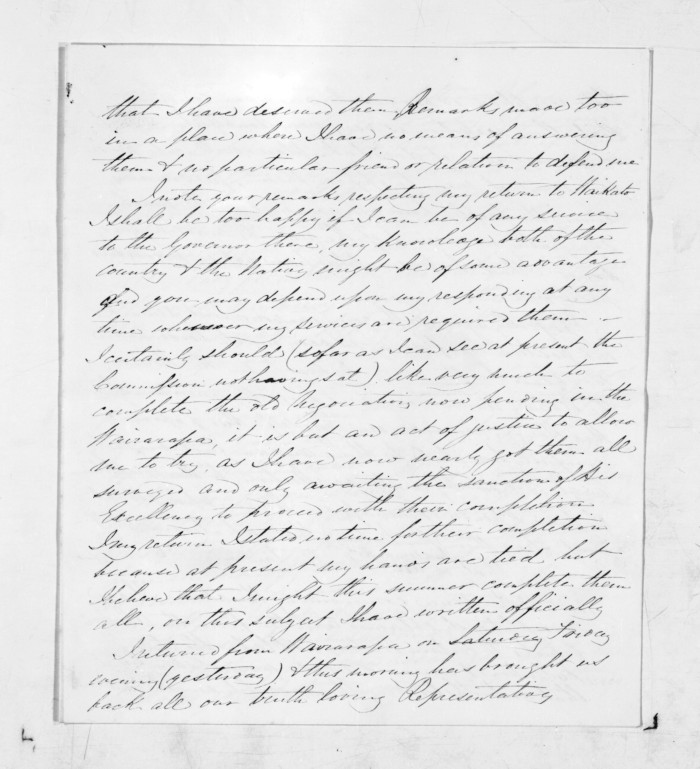 that I have deserved them Remarks made too
in a place where I have no means of answering
them & no particular friend or relation to defend me
I note your remarks respecting my return to Waikato
I shall be too happy if I can be of any service
to the Governor there, my knowledge both of the
country & the Natives might be of some advantage
And you may depend upon my responding at any
time whenever my services are required there
I certainly should (so far as I can see at present the
Commission not having sat) like very much to
complete the old Negociations now pending in the
Wairarapa, it is but an act of justice to allow
me to try, as I have now nearly got them all
surveyed and only awaiting the sanction of His
Excellency to proceed with their completion
In my return I stated no time for their completion
because at present my hands are tied but
I believe that I might this summer complete them
all, on this subject I have written officially
I returned from Wairarapa on Saturday Friday
evening (yesterday) & this morning has brought us
back all our truth loving Representatives